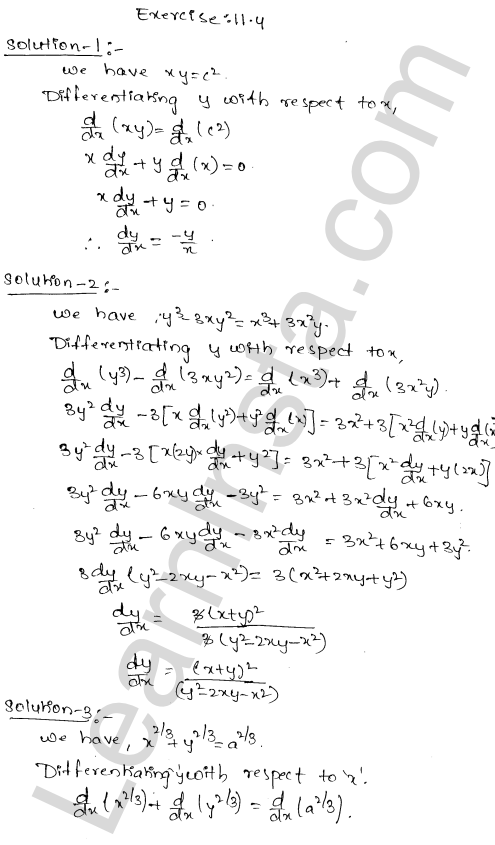 Exercise:11.4
Solution-1:-
We have xy=c².
Differentiating y with respect to x,
d/dx (xy)= d/dx (c²)
x dy/dx + y d/dx (x)=0.
x dy/dx + y=0.
∴ dy/dx = -y/x .
Solution-2:-
We have y³-3xy²=x³+3x²y.
Differentiating y with respect to x,
d/dx (y³)- d/dx (3xy²)= d/dx (x³)+ d/dx (3x²y).
3y² dy/dx -3[x d/dx (y²)+y² d/dx (x)]=3x²+3[x² d/dx (y)+y d/dx (x²)]
3y² dy/dx -3[x(2y)× dy/dx +y²]=3x²+3[x² dy/dx +y(2x)]
3y² dy/dx -6xy dy/dx -3y²=3x²+3x² dy/dx +6xy.
3y² dy/dx -6xy dy/dx -3x² dy/dx =3x²+6xy+3y².
3 dy/dx (y²-2xy-x²)=3(x²+2xy+y²)
dy/dx = 3(x+y)² / 3(y²-2xy-x²)
dy/dx = (x+y)² / (y²-2xy-x²)
Solution-3:-
We have, x^2/3+y^2/3=a^2/3.
Differentiating 'y' with respect to 'x'.
d/dx (x^2/3)+ d/dx (y^2/3)= d/dx (a^2/3).
Learninsta.com